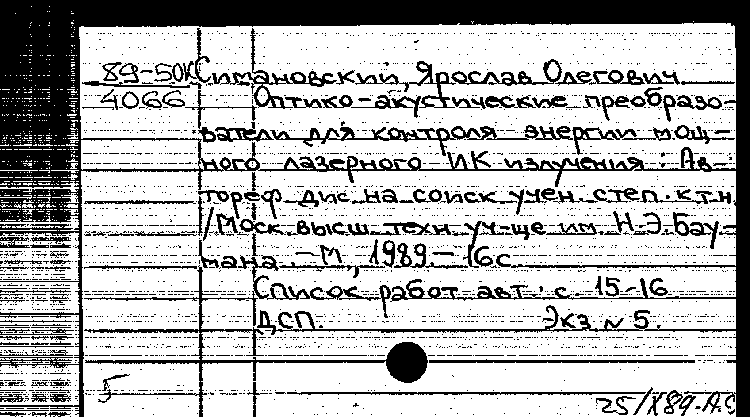 89-50К Симановский, Ярослав Олегович
4066 Оптико-акустические преобразо-
ватели для контроля энергии мощ-
ного лазерного ИК излучения: Ав-
тореф дис. на соиск учен. степ. к.т.н.
/Моск высш техн. уч-ще им. Н.Э.Бау-
мана. – М., 1989. – 16с
Список работ авт.: с. 15-16
ДСП. Экз № 5.
25/X89-